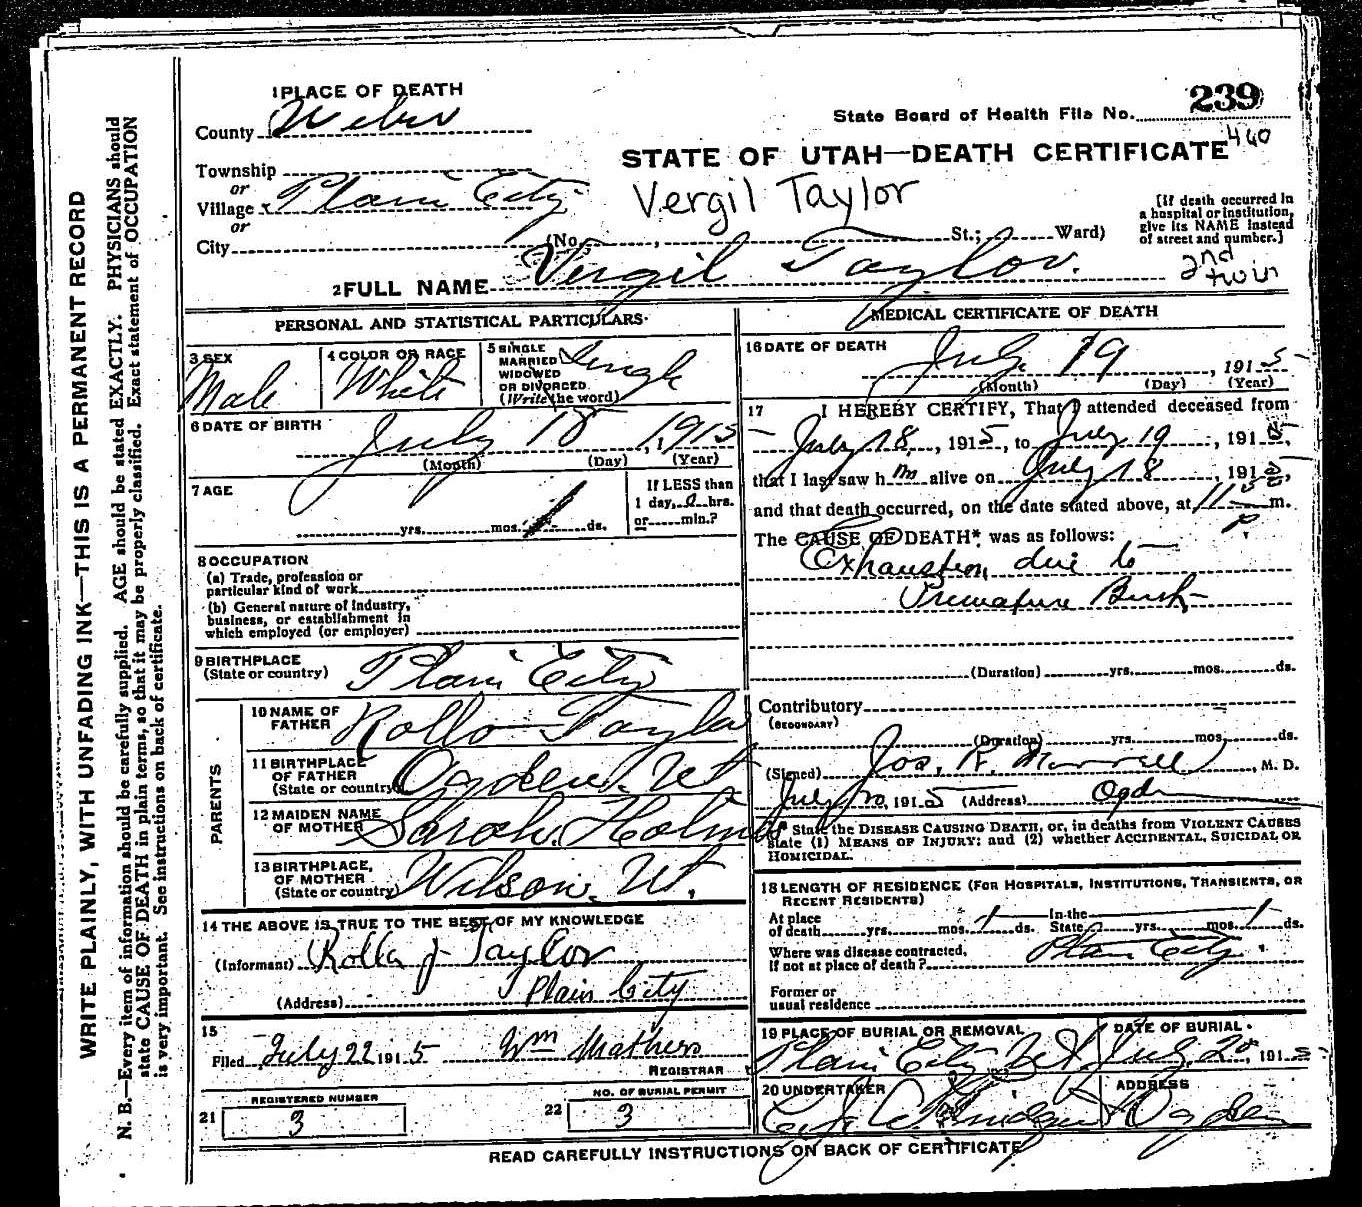 WRITE PLAINLY, WITH UNFADING INK—THIS IS A PERMANENT RECORD
N. B.—Every item of information should be carefully supplied. AGE should be stated EXACTLY. PHYSICIANS should
state CAUSE OF DEATH in plain terms, so that it may be properly classified. Exact statement of OCCUPATION
is very important. See instructions on back of certificate.
1 PLACE OF DEATH
County Weber
State Board of Health File No. 239
460
STATE OF UTAH—DEATH CERTIFICATE
Township
or
Village Plain City
or
City
Vergil Taylor
(No. , St.; Ward)
[If death occurred in
a hospital or institution,
give its NAME instead
of street and number.]
2nd
twin
2 FULL NAME Vergil Taylor.
PERSONAL AND STATISTICAL PARTICULARS
3 SEX
Male
4 COLOR OR RACE
White
5 SINGLE
MARRIED
WIDOWED
OR DIVORCED
(Write the word)
Single
6 DATE OF BIRTH
July 18, 1915
(Month) (Day) (Year)
7 AGE
yrs. mos. 1 ds.
If LESS than
1 day, hrs.
or min.?
8 OCCUPATION
(a) Trade, profession or
particular kind of work
(b) General nature of industry,
business, or establishment in
which employed (or employer)
9 BIRTHPLACE
(State or country) Plain City
PARENTS
10 NAME OF
FATHER Rollo Taylor
11 BIRTHPLACE
OF FATHER
(State or country) Ogden. Ut
12 MAIDEN NAME
OF MOTHER Sarah Holmes
13 BIRTHPLACE,
OF MOTHER
(State or country) Wilson. Ut.
14 THE ABOVE IS TRUE TO THE BEST OF MY KNOWLEDGE
(Informant) Rolla J Taylor
(Address) Plain City
15
Filed July 22 1915 Wm Mathers
REGISTRAR
21 REGISTERED NUMBER
3
22 NO. OF BURIAL PERMIT
3
MEDICAL CERTIFICATE OF DEATH
16 DATE OF DEATH
July 19, 1915
(Month) (Day) (Year)
17 I HEREBY CERTIFY, That I attended deceased from
July 18, 1915, to July 19, 1915,
that I last saw h m alive on July 18, 1915,
and that death occurred, on the date stated above, at 11 P m.
The CAUSE OF DEATH* was as follows:
Exhaustion due to
Premature Birth
(Duration) yrs. mos. ds.
Contributory
(SECONDARY)
(Duration) yrs. mos. ds.
(Signed) Jos. R. Morrell, M. D.
July 20, 1915 (Address) Ogden
* State the DISEASE CAUSING DEATH, or, in deaths from VIOLENT CAUSES
state (1) MEANS OF INJURY; and (2) whether ACCIDENTAL, SUICIDAL OR
HOMICIDAL.
18 LENGTH OF RESIDENCE (FOR HOSPITALS, INSTITUTIONS, TRANSIENTS, OR
RECENT RESIDENTS)
At place
of death yrs. mos. 1 ds. In the
State yrs. mos. 1 ds.
Where was disease contracted,
If not at place of death? Plain City.
Former or
usual residence
19 PLACE OF BURIAL OR REMOVAL
Plain City Ut
DATE OF BURIAL
July 20, 1915
20 UNDERTAKER
ADDRESS
Ogden
READ CAREFULLY INSTRUCTIONS ON BACK OF CERTIFICATE